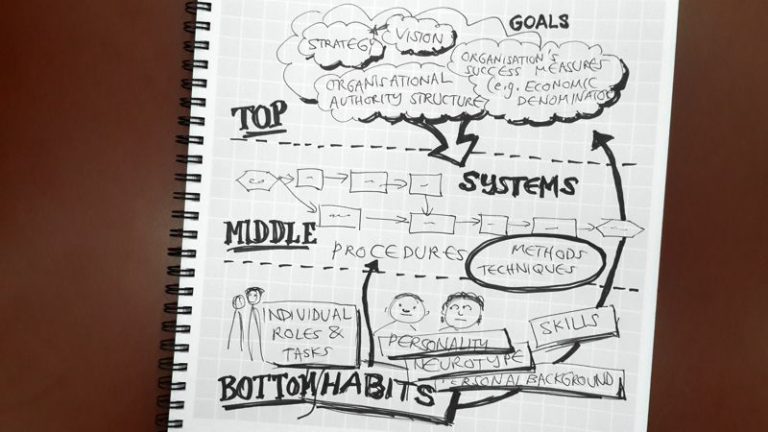 GOALS
STRATEGY
VISION
ORGANISATION'S
SUCCESS MEASURES
(e.g. ECONOMIC
DENOMINATOR
ORGANISATIONAL
AUTHORITY STRUCTURE
TOP
SYSTEMS
MIDDLE
PROCEDURES
METHODS
TECHNIQUES
INDIVIDUAL
ROLES &
TASKS
PERSONALITY
SKILLS
NEUROTYPE
PERSONAL BACKGROUND
BOTTOM/HABITS